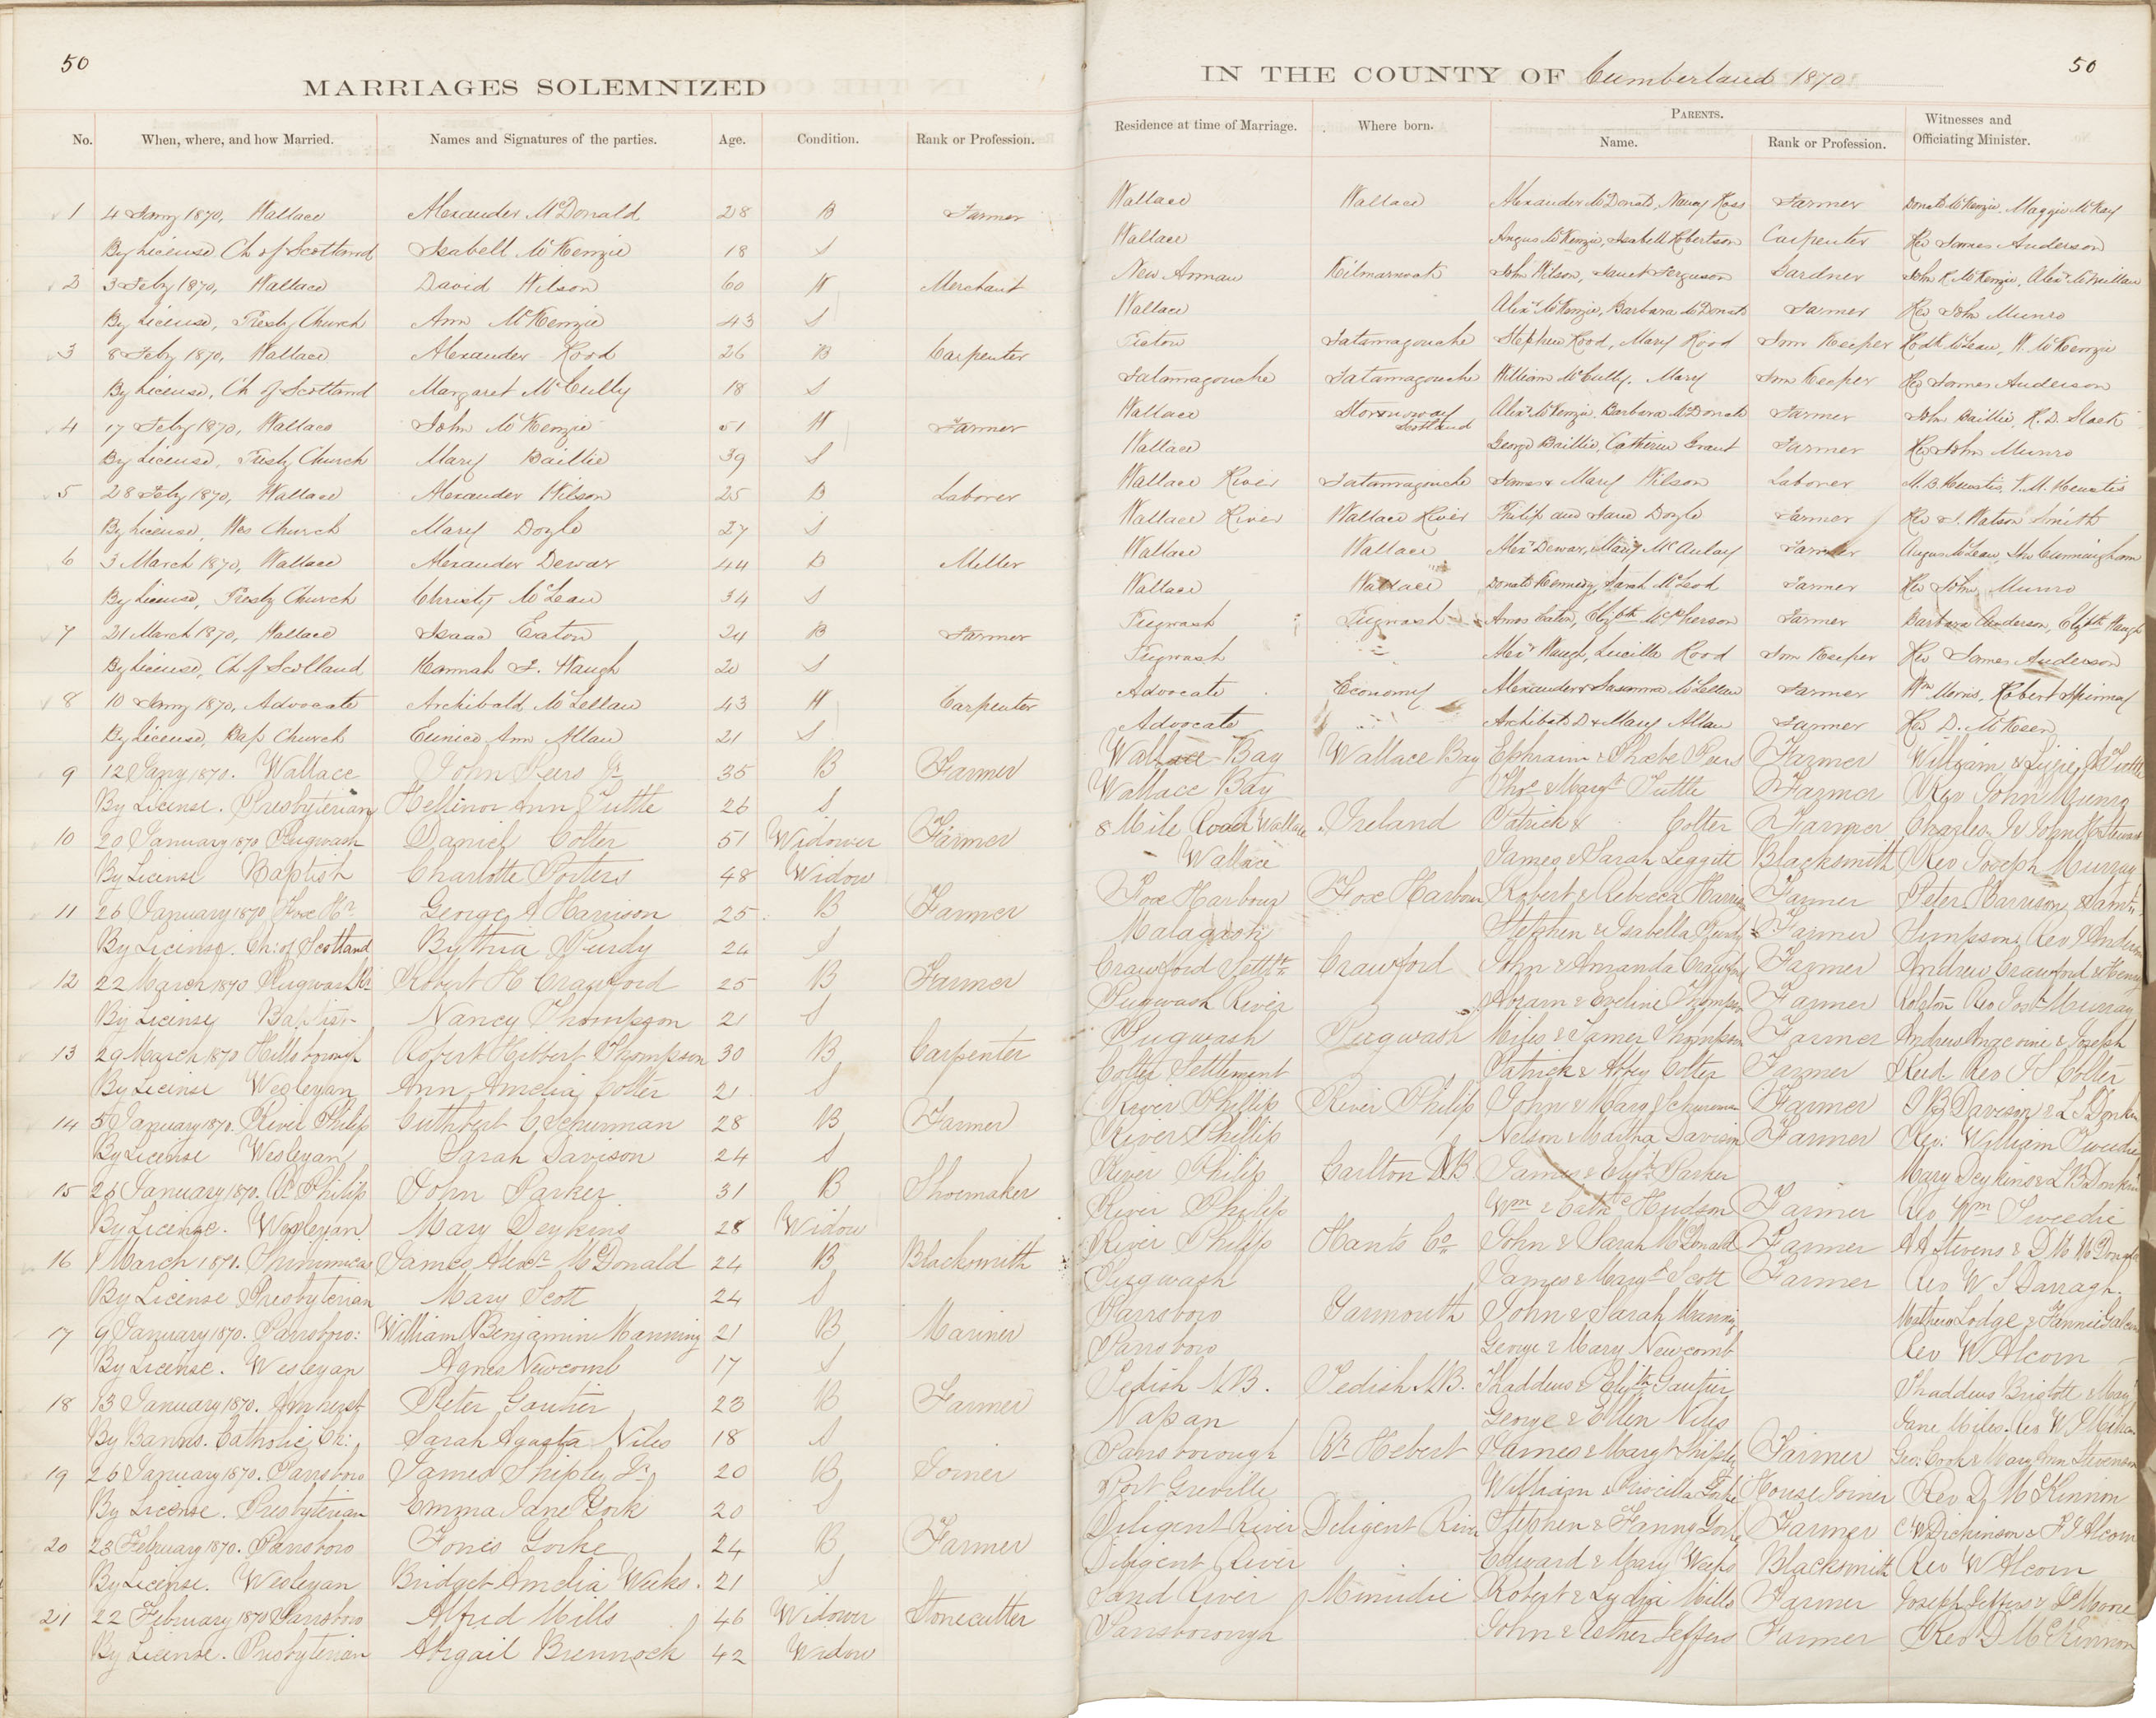 50
MARRIAGES SOLEMNIZED
No. When, where, and how Married. Names and Signatures of the parties. Age. Condition. Rank or Profession.
1 4 Jany 1870, Wallace Alexander McDonald 28 B Farmer
By License Ch of Scotland Isabell McKenzie 18 S
2 3 Feby 1870, Wallace David Wilson 60 W Merchant
By License, Presby Church Ann McKenzie 43 S
3 8 Feby 1870, Wallace Alexander Hood 26 B Carpenter
By License, Ch of Scotland Margaret McCully 18 S
4 17 Feby 1870, Wallace John McKenzie 51 W Farmer
By License, Presby Church Mary Baillie 39 S
5 28 Feby 1870, Wallace Alexander Wilson 25 B Laborer
By License, Wes Church Mary Doyle 27 S
6 3 March 1870, Wallace Alexander Dewar 44 B Miller
By License, Presby Church Christy McLean 34 S
7 21 March 1870, Wallace Isaac Eaton 24 B Farmer
By License, Ch of Scotland Hannah F. Waugh 20 S
8 10 Jany 1870, Advocate Archibald McLellan 43 W Carpenter
By License, Bap Church Eunice Ann Allan 21 S
9 12 Jany 1870. Wallace John Peers Jr 35 B Farmer
By License. Presbyterian Hellinor Ann Tuttle 26 S
10 20 January 1870 Pugwash Daniel Colter 51 Widower Farmer
By License Baptist Charlotte Porters 48 Widow
11 26 January 1870 Fox Hr George A Harrison 25 B Farmer
By License. Ch: of Scotland Bythia Purdy 24 S
12 22 March 1870 Pugwash Rr Robert H Crawford 25 B Farmer
By License Baptist Nancy Thompson 21 S
13 29 March 1870 Hillsborough Robert Hibbert Thompson 30 B Carpenter
By License Wesleyan Ann Amelia Colter 21 S
14 5 January 1870. River Philip Cuthbert C Schurman 28 B Farmer
By License Wesleyan Sarah Davison 24 S
15 26 January 1870. Rr Philip John Parker 31 B Shoemaker
By License. Wesleyan Mary Deykins 28 Widow
16 1 March 1871. James Alexr McDonald 24 B Blacksmith
By License Presbyterian Mary Scott 24 S
17 9 January 1870. Parrsboro: William Benjamin Manning 21 B Mariner
By License. Wesleyan Agnes Newcomb 17 S
18 13 January 1870. Amherst Peter Gautier 23 B Farmer
By Banns. Catholic Ch: Sarah Agusta Niles 18 S
19 26 January 1870. Parrsboro James Shipley Jr 20 B Joiner
By License. Presbyterian Emma Jane York 20 S
20 23 February 1870. Parrsboro Jones Yorke 24 B Farmer
By License. Wesleyan Bridget Amelia Weeks. 21 S
21 22 February 1870 Parrsboro Alfred Mills 46 Widower Stonecutter
By License. Presbyterian Abigail Brennock 42 Widow
IN THE COUNTY OF Cumberland 1870 50
Residence at time of Marriage. Where born. PARENTS. Name. Rank or Profession. Witnesses and Officiating Minister.
Wallace Wallace Alexander McDonald, Nancy Ross Farmer Donald McKenzie, Maggie McKay
Wallace Angus McKenzie, Isabell Robertson Carpenter Rev James Anderson
New Annan Kilmarnock John Wilson, Janet Ferguson Gardner John R McKenzie, Alexr McMillan
Wallace Alexr McKenzie, Barbara McDonald Farmer Rev John Munro
Pictou Tatamagouche Stephen Hood, Mary Hood Inn Keeper Rodk McLean, W. McKenzie
Tatamagouche Tatamagouche William McCully. Mary Inn Keeper Rev James Anderson
Wallace Stornoway Scotland Alexr McKenzie, Barbara McDonald Farmer John Baillie, R. D. Slack
Wallace George Baillie, Catherine Grant Farmer Rev John Munro
Wallace River Tatamagouche James & Mary Wilson Laborer M. B. Huestis, T. M. Huestis
Wallace River Wallace River Philip and Jane Doyle Farmer Rev J. Watson Smith
Wallace Wallace Alexr Dewar, Mary McAulay Farmer Angus McLean, Cunningham
Wallace Wallace Donald Kennedy, Sarah McLeod Farmer Rev John Munro
Pugwash Pugwash Amos Eaton, Elizbth McPherson Farmer Barbara Anderson, Elizth Waugh
Pugwash Alexr Waugh, Lucilla Hood Inn Keeper Rev James Anderson
Advocate Economy Alexander & Susanna McLellan Farmer Wm Morris, Robert Spinney
Advocate Archibald D & Mary Allan Farmer Rev D. McKeen
Wallace Bay Wallace Bay Ephraim & Phoebe Peers Farmer William & Lizzie A Tuttle
Wallace Bay Thos & Margt Tuttle Farmer Rev John Munro
8 Mile Road Wallace Ireland Patrick & Colter Farmer Charles & John H Stewart
Wallace James & Sarah Leggett Blacksmith Rev Joseph Murray
Fox Harbour Fox Harbour Robert & Rebecca Harrison Farmer Peter Harrison &
Malagash Stephen & Isabella Purdy Farmer Simpson, Rev J Anderson
Crawford Settlt Crawford John & Amanda Crawford Farmer Andrew Crawford & Henry
Pugwash River Abram & Eveline Thompson Farmer Rolston Rev Josh Murray
Pugwash Pugwash Miles & Tamer Thompson Farmer Andrew Angevine & Joseph
Colter Settlement Patrick & Abbey Colter Farmer Reid Rev J S Colter
River Phillip River Philip John & Mary Schurman Farmer J B Davison & L Donkin
River Phillip Nelson & Martha Davison Farmer Rev: William Tweedie
River Philip Carlton NB James & Elizth Parker Mary Deykins & L B Donkin
River Philip Wm & Cathe Hudson Farmer Rev Wm Tweedie
River Philip Hants Co John & Sarah McDonald Farmer A A Stevens & D M McDougle
Pugwash James & Margt Scott Farmer Rev W S Darragh.
Parrsboro Yarmouth John & Sarah Manning Mathew Lodge & Fannie
Parrsboro George & Mary Newcomb Rev W Alcorn
Tedish NB. Tedish NB. Thaddeus & Elizth Gautier Thaddeus & Mary
Napan George & Ellen Niles Jane Miles. Rev W
Parrsborough Rr Hebert James & Margt Shipley Farmer Geo: Cook & Mary Ann Stevenson
Port Greville William & Priscilla Yorke House Joiner Rev D McKinnon
Diligent River Diligent River Stephen & Fanny Yorke Farmer C W Dickinson & Alcorn
Diligent River Edward & Mary Weeks Blacksmith Rev W Alcorn
Sand River Minudie Robert & Lydia Mills Farmer Joseph Jeffers & Moore
Parrsborough John & Esther Jeffers Farmer Rev D McKinnon